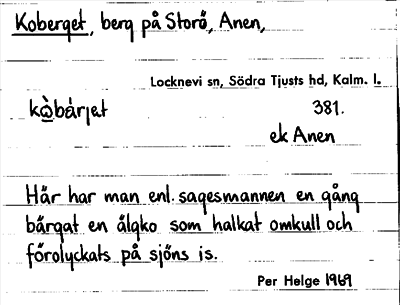 Koberget, berg på Storö, Anen,
Locknevi sn, Södra Tjusts hd, Kalm. l.
kὼbárjet 381.
ek Anen
Här har man enl. sagesmannen en gång
bärgat en älgko som halkat omkull och
förolyckats på sjöns is.
Per Helge 1969